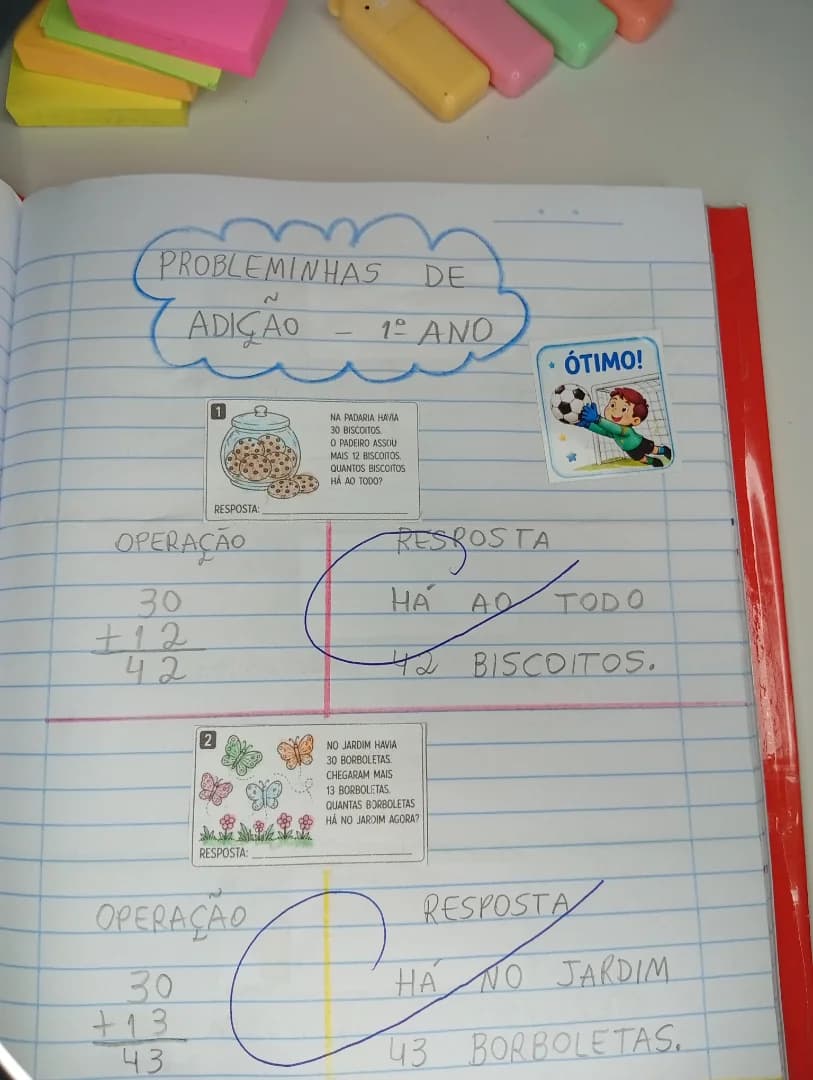 PROBLEMINHAS DE
ADIÇÃO - 1º ANO
ÓTIMO!
1
NA PADARIA HAVIA
30 BISCOITOS.
O PADEIRO ASSOU
MAIS 12 BISCOITOS.
QUANTOS BISCOITOS
HÁ AO TODO?
RESPOSTA:
OPERAÇÃO
30
+12
42
RESPOSTA
HÁ AO TODO
42 BISCOITOS.
2
NO JARDIM HAVIA
30 BORBOLETAS.
CHEGARAM MAIS
13 BORBOLETAS.
QUANTAS BORBOLETAS
HÁ NO JARDIM AGORA?
RESPOSTA:
OPERAÇÃO
30
+13
43
RESPOSTA
HÁ NO JARDIM
43 BORBOLETAS.